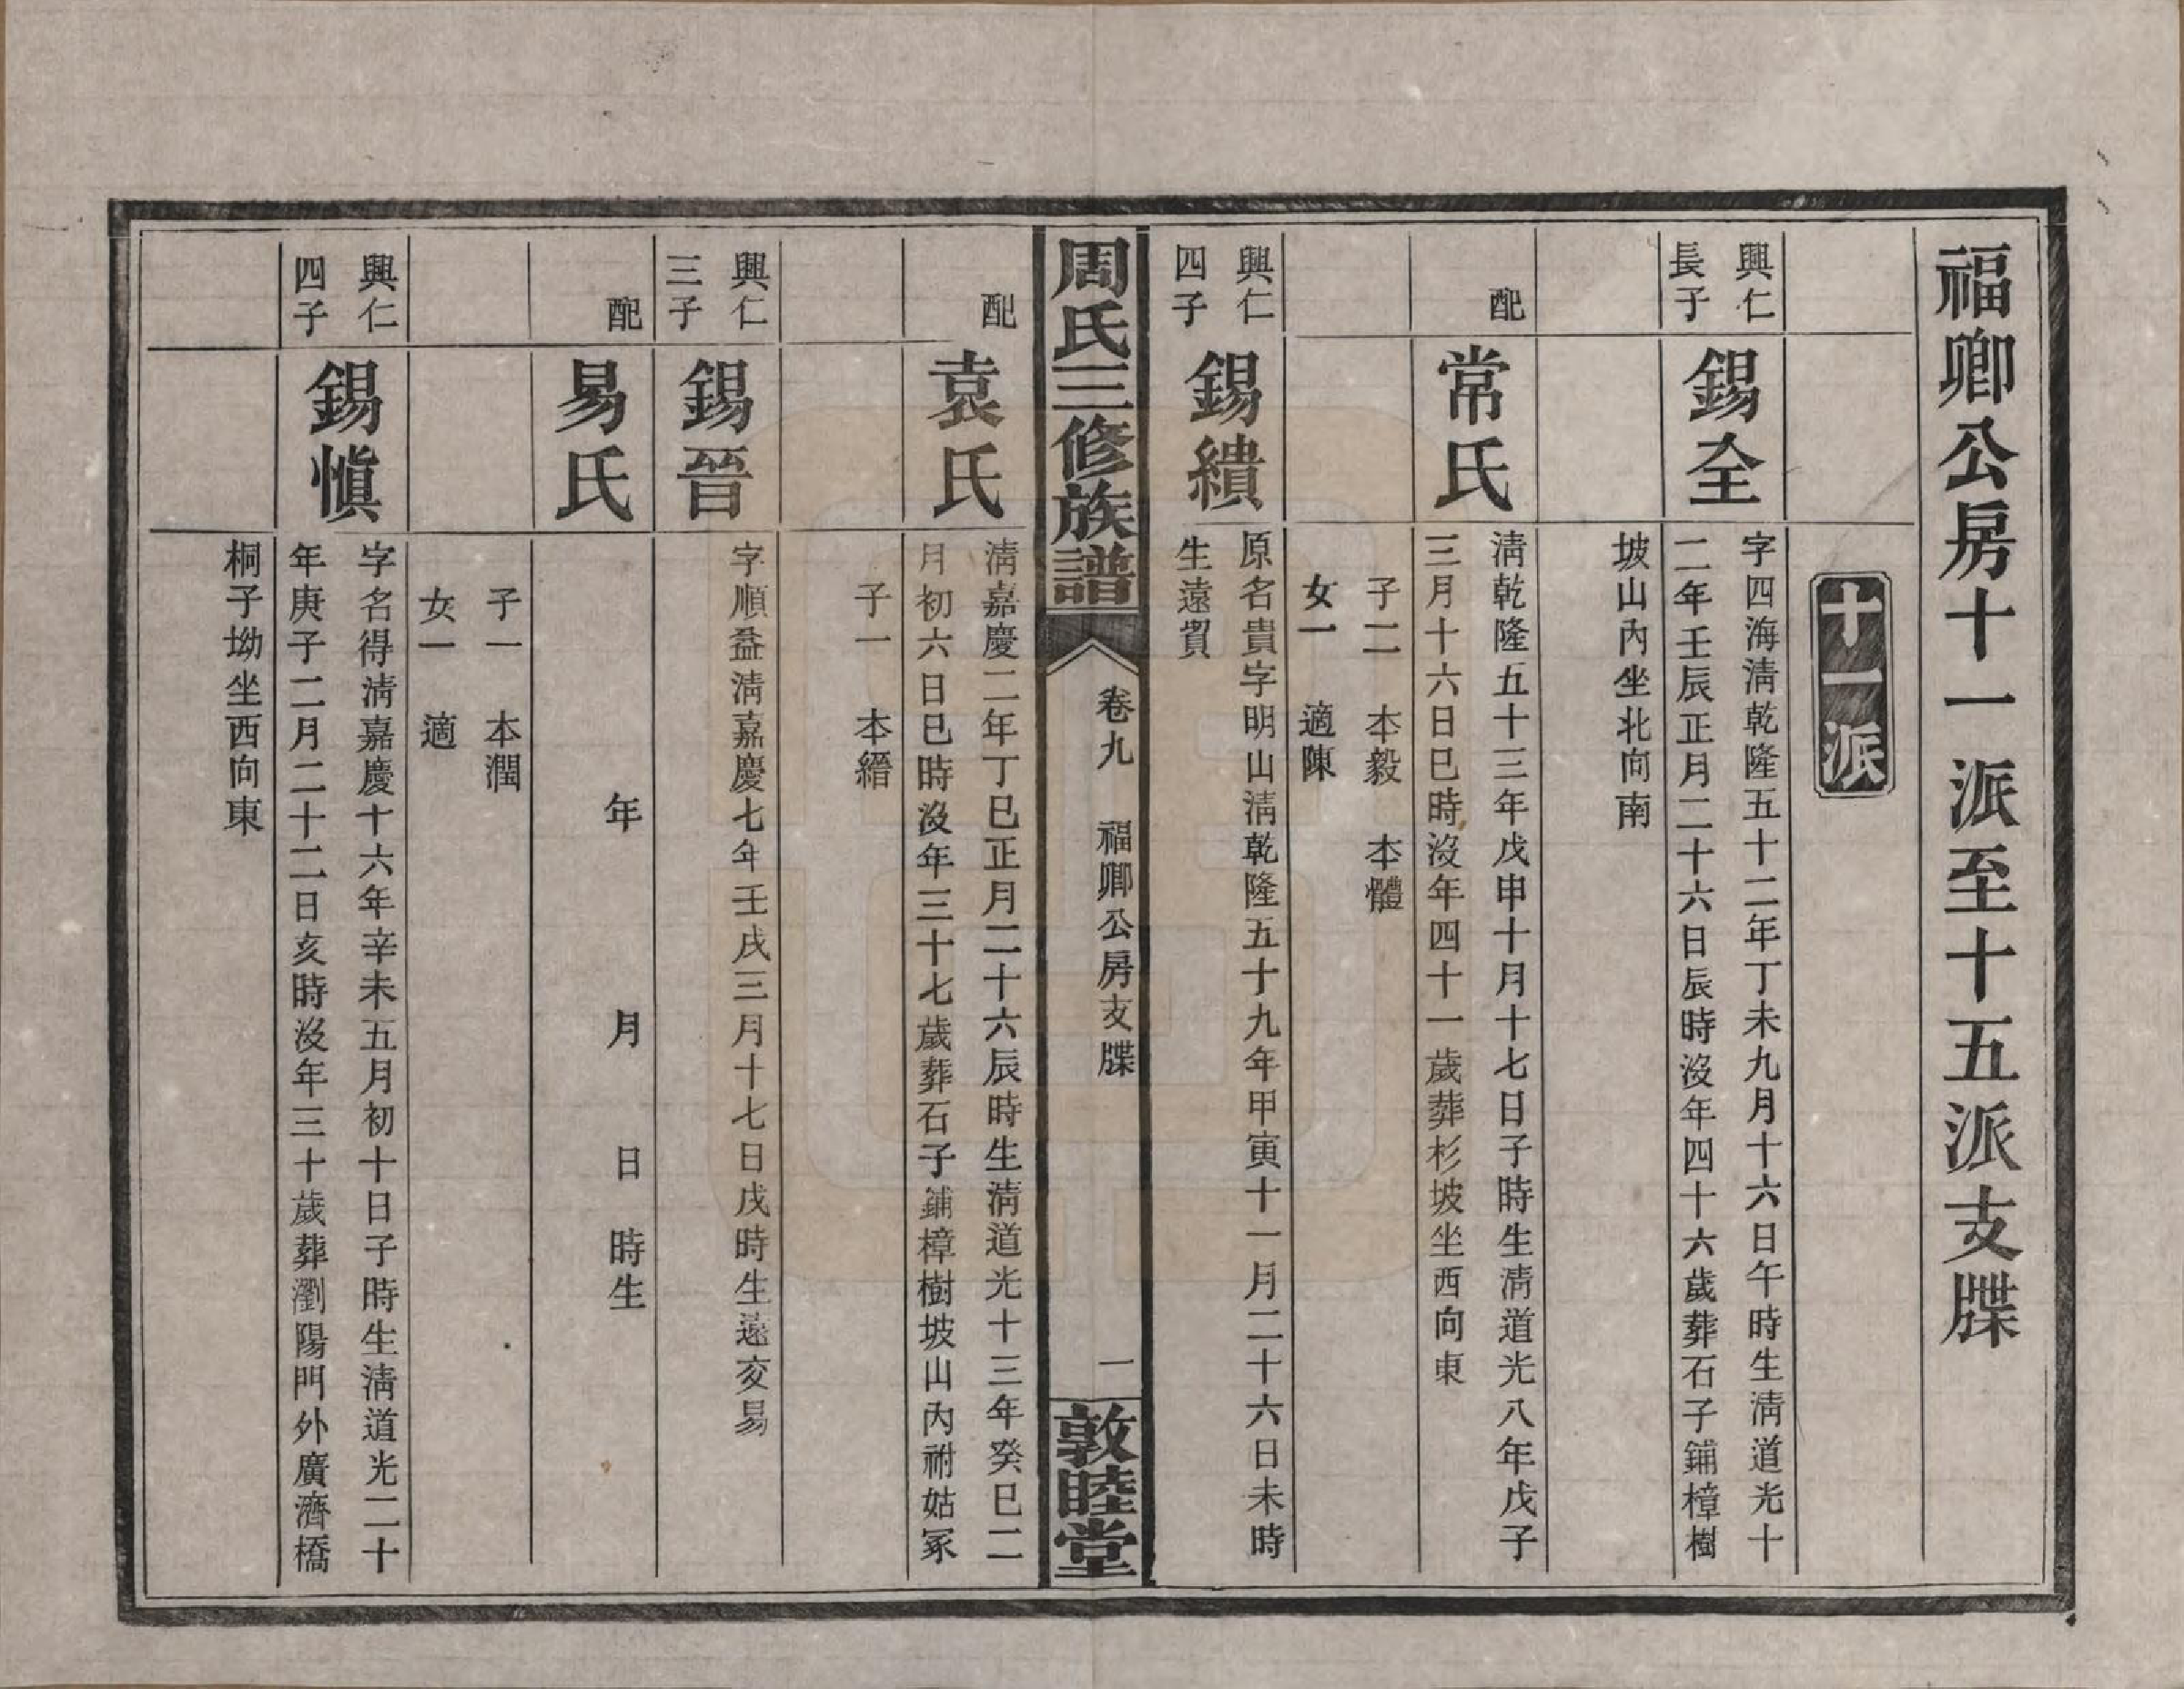 福卿公房十一派至十五派支牒
十一派
興仁
長子
錫全
字四海淸乾隆五十二年丁未九月十六日午時生淸道光十
二年壬辰正月二十六日辰時沒年四十六歲葬石子鋪樟樹
坡山內坐北向南
配
常氏
淸乾隆五十三年戊申十月十七日子時生淸道光八年戊子
三月十六日巳時沒年四十一歲葬杉坡坐西向東
子二　本毅　本體
女一　適陳
興仁
四子
錫繢
原名貴字明山淸乾隆五十九年甲寅十一月二十六日未時
生遠貿
周氏三修族譜
卷九　福卿公房支牒
一
敦睦堂
配
袁氏
淸嘉慶二年丁巳正月二十六辰時生淸道光十三年癸巳二
月初六日巳時沒年三十七歲葬石子鋪樟樹坡山內祔姑冢
子一　本縉
興仁
三子
錫晉
字順益淸嘉慶七年壬戌三月十七日戌時生遠交易
配
易氏
年　月　日　時生
子一　本潤
女一　適
興仁
四子
錫愼
字名得淸嘉慶十六年辛未五月初十日子時生淸道光二十
年庚子二月二十二日亥時沒年三十歲葬瀏陽門外廣濟橋
桐子坳坐西向東